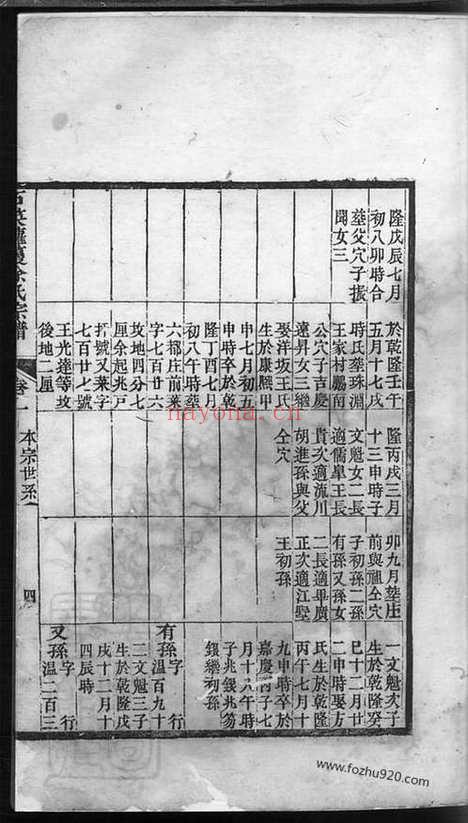 隆戊辰七月
初八卯時合
塟父穴子振
聞女三
於乾隆壬午
五月十七戌
時氏塟珠淵
王家村鸝南
公穴子吉慶
遠昇女三繼
娶洋坊王氏
生於康熙甲
申七月初五
申時卒於乾
隆丁酉七月
初八午時塟
六都庄前菜
字七百廿六
坟地四分七
厘余起兆戸
打號又菜字
七百廿七號
王光達等坟
後地二厘
隆丙戌三月
十三申時子
文魁女二長
適儒皐王長
貴次適流川
胡進孫與父
仝穴
卯九月塟庄
前與祖仝穴
子初孫二孫
有孫又孫女
二長適畢廣
正次適江堅
王初孫
一文魁次子
生於乾隆癸
巳十二月廿
二申時娶方
氏生於乾隆
丙午七月十
九申時卒於
嘉慶丙子七
月十六午時
子兆錢兆
樂初孫
有孫字 行
溫百九十
二文魁三子
生於乾隆戊
戌十二月十
四辰時
又孫字 行
溫二百三
余氏宗譜
卷一
本宗世系
四
nayona.cn
www.fozhu920.com